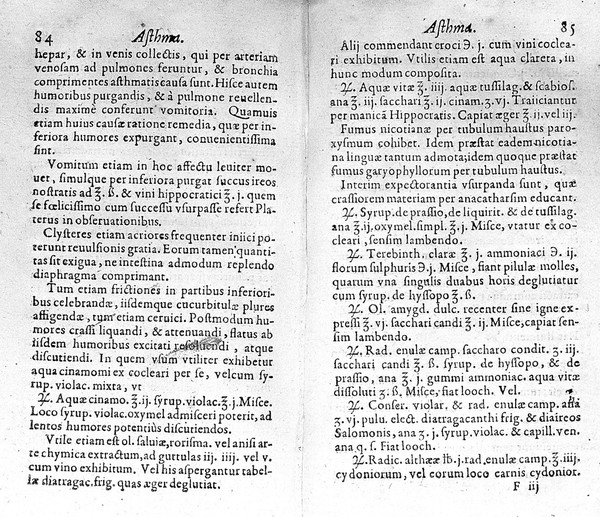 84 Asthma.
hepar, & in venis collectis, qui per arteriam
venosam ad pulmones feruntur, & bronchia
comprimentes asthmatis causa sunt. Hisce autem
humoribus purgandis, & à pulmone reuellen-
dis maximè conferunt vomitoria. Quamuis
etiam huius causæ ratione remedia, quæ per in-
feriora humores expurgant, conuenientissima
sint.
Vomitum etiam in hoc affectu leuiter mo-
uet, simulque per inferiora purgat succus ireos
nostratis ad ℥. ß. & vini hippocratici ℥. j. quem
se fœlicissimo cum successu vsurpasse refert Pla-
terus in obseruationibus.
Clysteres etiam acriores frequenter inijci po-
terunt reuulsionis gratia. Eorum tamen quanti-
tas sit exigua, ne intestina admodum replendo
diaphragma comprimant.
Tum etiam frictiones in partibus inferiori-
bus celebrandæ, iisdemque cucurbitulæ plures
affigendæ, tum etiam ceruici. Postmodum hu-
mores crassi liquandi, & attenuandi, flatus ab
iisdem humoribus excitati resoluendi, atque
discutiendi. In quem vsum vtiliter exhibetur
aqua cinamomi ex cocleari per se, vel cum sy-
rup. violac. mixta, vt
℞. Aquæ cinamo. ℥. ij. syrup. violac. ℥. j. Misce.
Loco syrup. violac. oxymel admisceri poterit, ad
lentos humores potentiùs discutiendos.
Vtile etiam est ol. saluiæ, rorisma. vel anisi ar-
te chymica extractum, ad guttulas iij. iiij. vel v.
cum vino exhibitum. Vel his aspergantur tabel-
læ diatragac. frig. quas æger deglutiat.
Asthma. 85
Alij commendant croci ℈. j. cum vini coclea-
ri exhibitum. Vtilis etiam est aqua clareta, in
hunc modum composita.
℞. Aquæ vitæ ℥. iiij. aquæ tussilag. & scabios.
ana ℥. iij. sacchari ℥. ij. cinam. ʒ. vj. Traiiciantur
per manicā Hippocratis. Capiat æger ℥. ij. vel iij.
Fumus nicotianæ per tubulum haustus paro-
xysmum cohibet. Idem præstat eadem nicotia-
na linguæ tantum admota; idem quoque præstat
fumus garyophyllorum per tubulum haustus.
Interim expectorantia vsurpanda sunt, quæ
crassiorem materiam per anacatharsim educant.
℞. Syrup. de prassio, de liquirit. & de tussilag.
ana ℥. ij, oxymel. simpl. ℥. j. Misce, vtatur ex co-
cleari, sensim lambendo.
℞. Terebinth. claræ ʒ. j. ammoniaci ℈. ij.
florum sulphuris ℈. j. Misce, fiant pilulæ molles,
quarum vna singulis duabus horis deglutiatur
cum syrup. de hyssopo ℥. ß.
℞. Ol. amygd. dulc. recenter sine igne ex-
pressi ℥. vj. sacchari candi ℥. ij. Misce, capiat sen-
sim lambendo.
℞. Rad. enulæ camp. saccharo condit. ʒ. iij.
sacchari candi ℥. ß. syrup. de hyssopo, & de
prassio, ana ℥. j. gummi ammoniac. aqua vitæ
dissoluti ʒ. ß. Misce, fiat looch. Vel.
℞. Conser. violar, & rad. enulæ camp. anā
ʒ. vj. pulu. elect. diatragacanthi frig. & diaireos
Salomonis, ana ʒ. j. syrup. violac. & capill. ven.
ana q. s. Fiat looch.
℞. Radic. althææ ℔. j. rad. enulæ camp. ℥. iiij.
cydoniorum, vel eorum loco carnis cydonior.
F iij